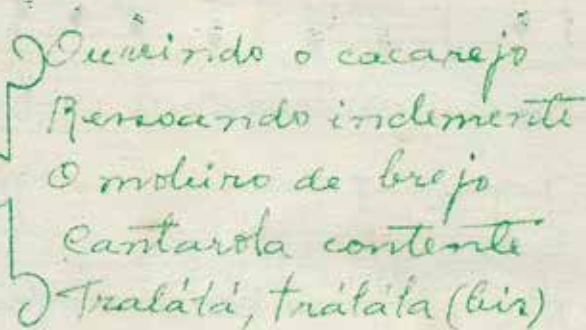 Ouvindo o cacarejo
Ressoando inclemente
O moleiro de brejo
Cantarola contente
Tralálá, trálála (bis)